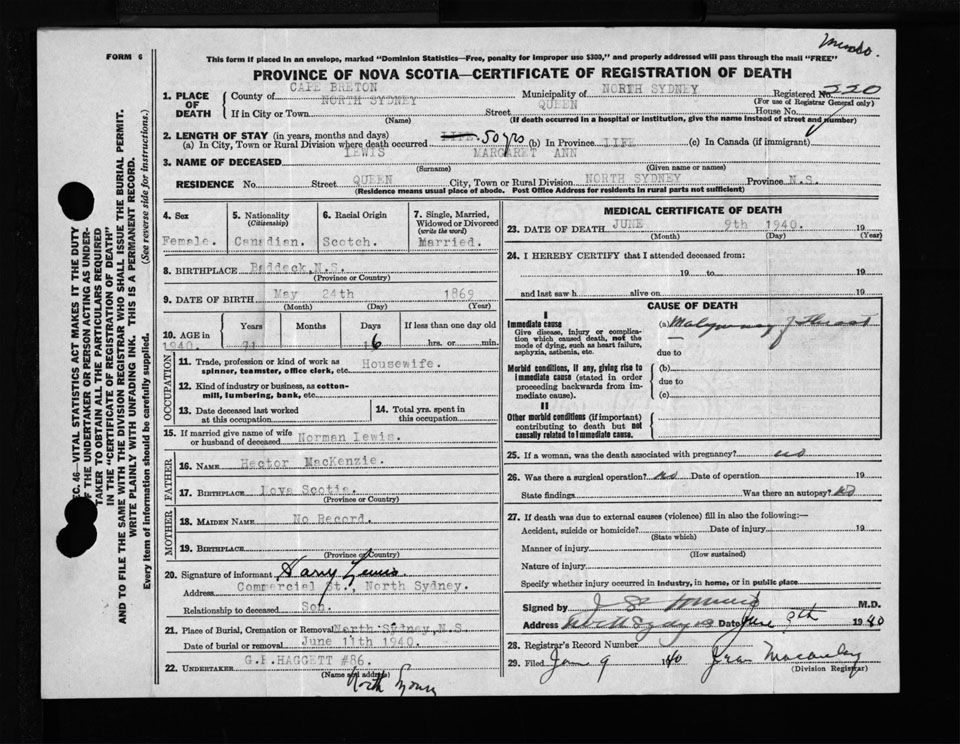 Mendo.
FORM 6
This form if placed in an envelope, marked "Dominion Statistics—Free, penalty for improper use $300," and properly addressed will pass through the mail "FREE"
PROVINCE OF NOVA SCOTIA—CERTIFICATE OF REGISTRATION OF DEATH
1. PLACE OF DEATH
County of CAPE BRETON Municipality of NORTH SYDNEY Registered No. 220
(For use of Registrar General only)
If in City or Town NORTH SYDNEY Street QUEEN House No.
(Name) (If death occurred in a hospital or institution, give the name instead of street and number)
2. LENGTH OF STAY (in years, months and days)
(a) In City, Town or Rural Division where death occurred LIFE. 50 yrs (b) In Province LIFE (c) In Canada (if immigrant)
3. NAME OF DECEASED LEWIS MARGARET ANN
(Surname) (Given name or names)
RESIDENCE No. Street QUEEN City, Town or Rural Division NORTH SYDNEY Province N.S.
(Residence means usual place of abode. Post Office Address for residents in rural parts not sufficient)
4. Sex Female.
5. Nationality (Citizenship) Canadian.
6. Racial Origin Scotch.
7. Single, Married, Widowed or Divorced (write the word) Married.
8. BIRTHPLACE Baddeck,N.S.
(Province or Country)
9. DATE OF BIRTH May 24th 1869
(Month) (Day) (Year)
10. AGE in 1940. Years 71 Months Days 16 If less than one day old hrs. or min.
OCCUPATION
11. Trade, profession or kind of work as spinner, teamster, office clerk, etc. Housewife.
12. Kind of industry or business, as cotton-mill, lumbering, bank, etc.
13. Date deceased last worked at this occupation
14. Total yrs. spent in this occupation
15. If married give name of wife or husband of deceased Norman Lewis.
FATHER
16. NAME Hector MacKenzie.
17. BIRTHPLACE Nova Scotia.
(Province or Country)
MOTHER
18. MAIDEN NAME No Record.
19. BIRTHPLACE
(Province or Country)
20. Signature of informant Harry Lewis
Address Commercial St., North Sydney.
Relationship to deceased Son.
21. Place of Burial, Cremation or Removal North Sydney,N.S.
Date of burial or removal June 11th 1940.
22. UNDERTAKER G.E.HAGGETT #86.
(Name and address)
North Sydney
MEDICAL CERTIFICATE OF DEATH
23. DATE OF DEATH JUNE 9th 1940. 19
(Month) (Day) (Year)
24. I HEREBY CERTIFY that I attended deceased from:
19 to 19
and last saw h alive on 19
CAUSE OF DEATH
I
Immediate cause
Give disease, injury or complication which caused death, not the mode of dying, such as heart failure, asphyxia, asthenia, etc.
(a) Malignancy of throat
due to
Morbid conditions, if any, giving rise to immediate cause (stated in order proceeding backwards from immediate cause).
(b)
due to
(c)
II
Other morbid conditions (if important) contributing to death but not causally related to immediate cause.
25. If a woman, was the death associated with pregnancy? no
26. Was there a surgical operation? no Date of operation 19
State findings Was there an autopsy? no
27. If death was due to external causes (violence) fill in also the following:—
Accident, suicide or homicide? Date of injury 19
(State which)
Manner of injury
(How sustained)
Nature of injury
Specify whether injury occurred in industry, in home, or in public place
Signed by M.D.
Address North Sydney NS Date June 9th 1940
28. Registrar's Record Number
29. Filed June 9 1940 Jean Macaulay
(Division Registrar)
SEC. 46—VITAL STATISTICS ACT MAKES IT THE DUTY
OF THE UNDERTAKER OR PERSON ACTING AS UNDERTAKER TO OBTAIN ALL THE PARTICULARS REQUIRED
IN THE "CERTIFICATE OF REGISTRATION OF DEATH"
AND TO FILE THE SAME WITH THE DIVISION REGISTRAR WHO SHALL ISSUE THE BURIAL PERMIT.
WRITE PLAINLY WITH UNFADING INK. THIS IS A PERMANENT RECORD.
Every item of information should be carefully supplied. (See reverse side for instructions.)